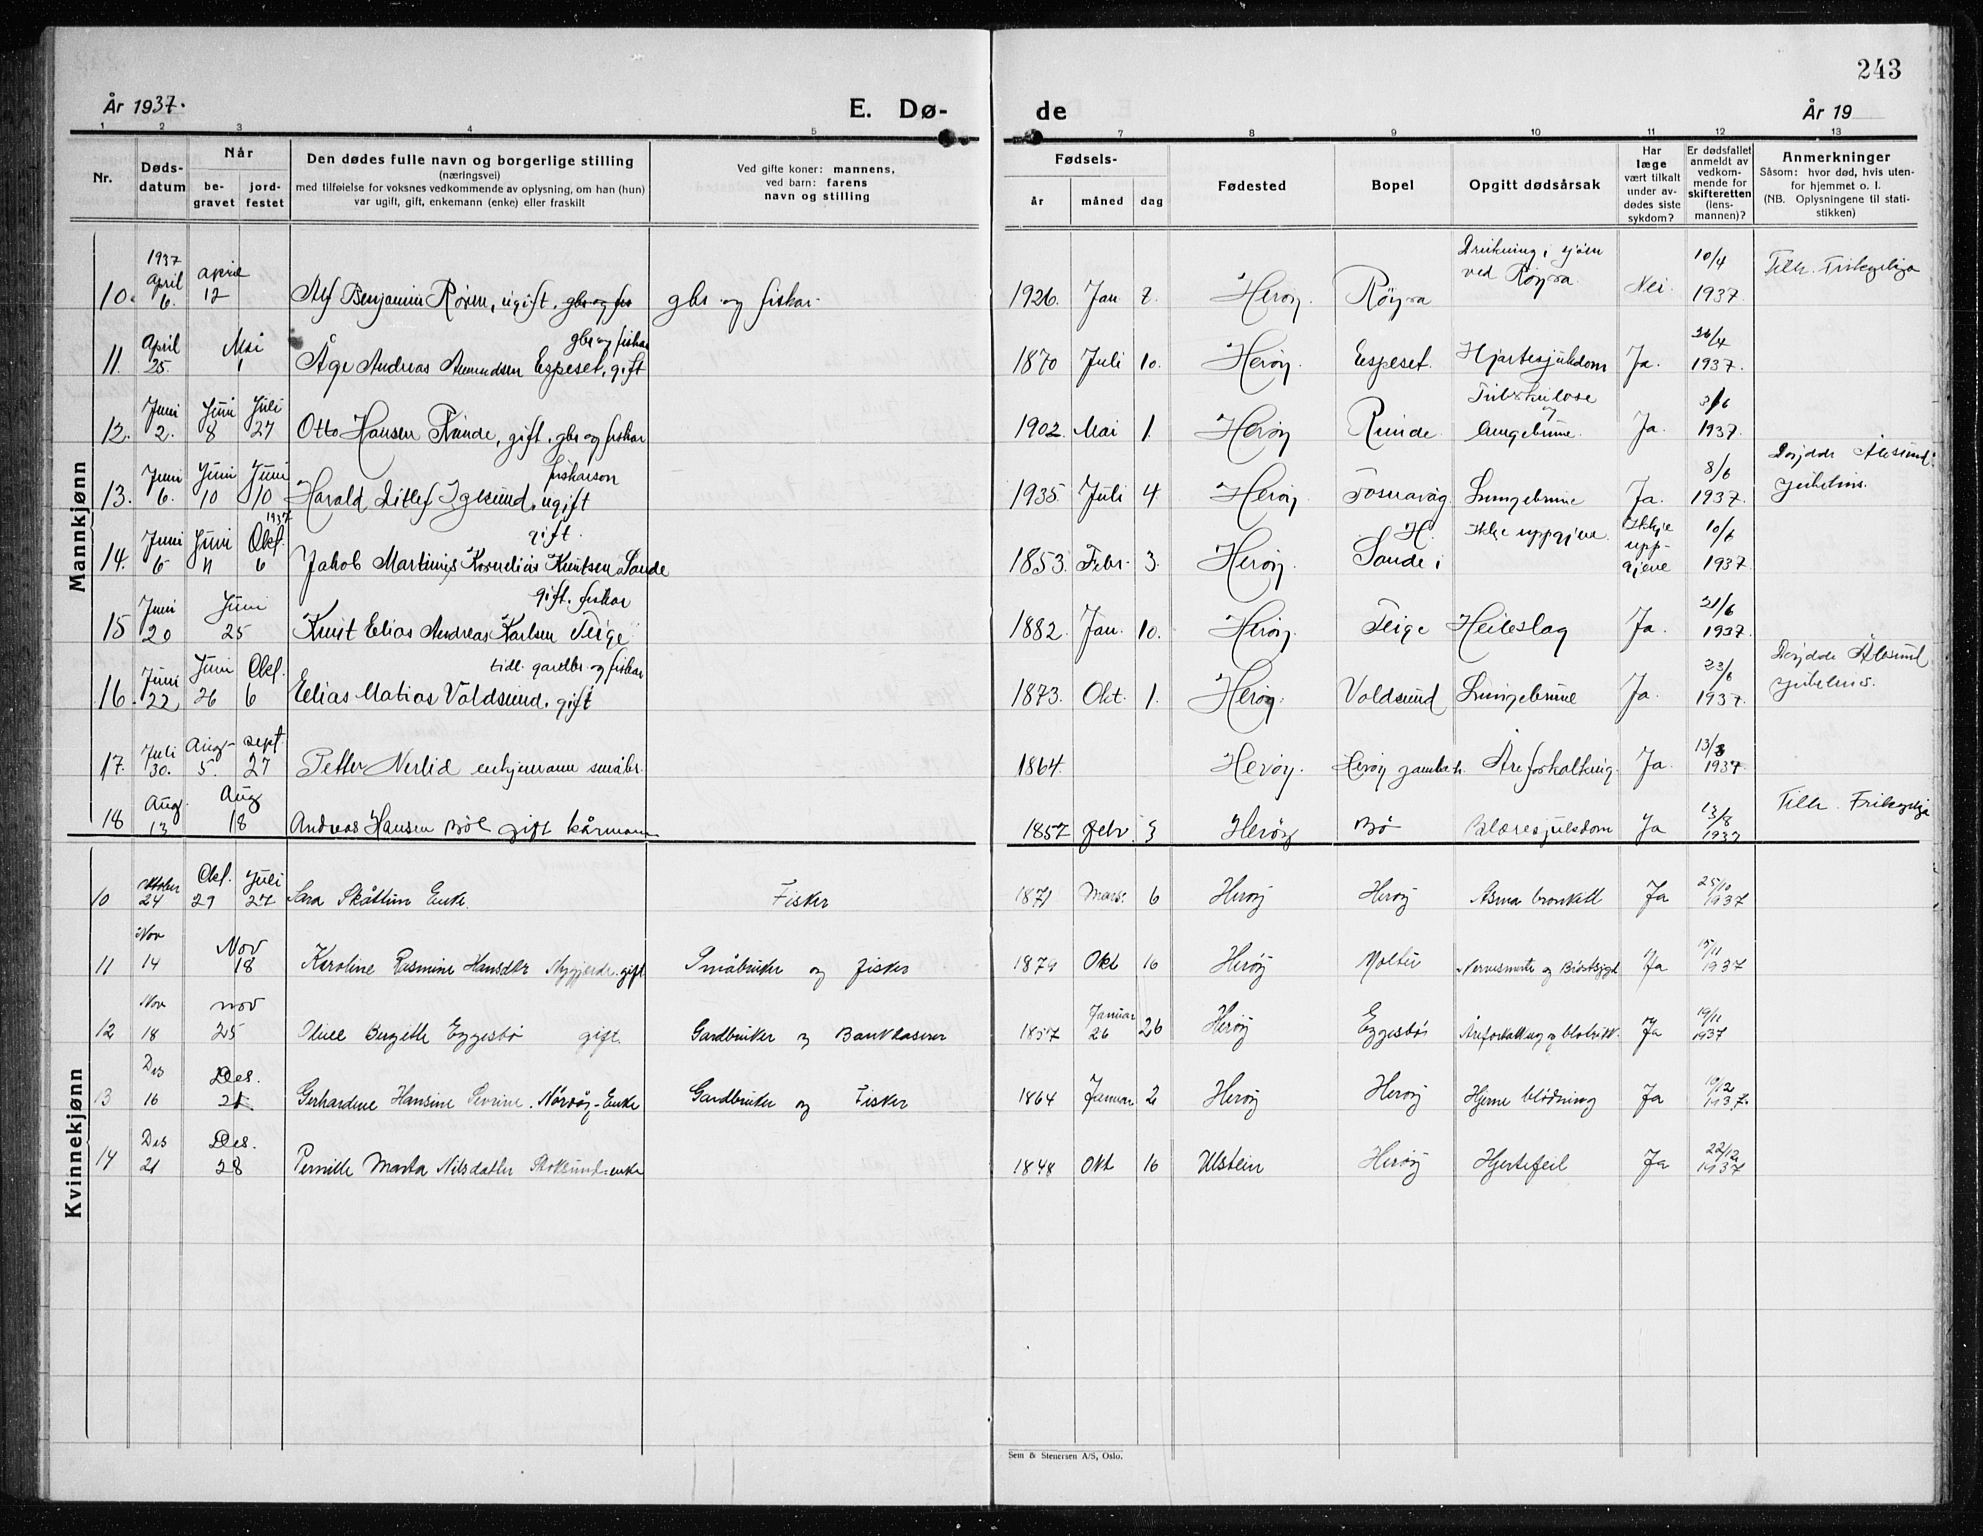 243
År 1937.
E. Dø-
de
År 19
1 2 3 4 5 7 8 9 10 11 12 13
Nr.
Døds-
datum
Når
be-
gravet
jord-
festet
Den dødes fulle navn og borgerlige stilling
(næringsvei)
med tilføielse for voksnes vedkommende av oplysning, om han (hun)
var ugift, gift, enkemann (enke) eller fraskilt
Ved gifte koner: mannens,
ved barn: farens
navn og stilling
Fødsels-
år måned dag
Fødested
Bopel
Opgitt dødsårsak
Har
læge
vært tilkalt
under av-
dødes siste
sykdom?
Er dødsfallet
anmeldt av
vedkom-
mende for
skifteretten
(lens-
mannen)?
Anmerkninger
Såsom: hvor død, hvis uten-
for hjemmet o. l.
(NB. Oplysningene til stati-
stikken)
Mannkjønn
1937
10. April 6. april 12 Alf Benjamin Rören, ugift, gbr og fis gbr og fiskar 1926 Jan 7. Heröy Röyra Drukning i sjöen ved Röyra Nei 10/4 1937. Tilh. Frikyrkja
11. April 25. Mai 1 Åge Andreas Amundsen Espeset, gift gbr og fiskar 1870 Juli 10. Heröy. Espeset. Hjartesjukdom Ja. 26/4 1937.
12. Juni 2. Juni 8 Juli 27 Otto Hansen Runde, gift, gbr og fiskar 1902. Mai 1. Heröy Runde. Tuberkulose og lungebrune. Ja. 3/6 1937.
13. Juni 6. Juni 10 Juni 10 1937 Harald Ditlef Igesund, ugift fiskarson 1935. Juli 4 Heröy Fosnavåg Lungebrune Ja. 8/6 1937. Döydde Ålesund sjukehus.
14. Juni 6 Juni 11 Okt. 6 Jakob Martinus Kornelius Knutsen Sande gift. 1853. Febr. 3. Heröy. Sande i H. Ikkje uppgjeve. Ikkje upp- gjeve 10/6 1937.
15 Juni 20 Juni 25 Knut Elias Andreas Karlsen Teige gift. fiskar 1882. Jan. 10. Heröy. Teige Heileslag Ja. 21/6 1937.
16. Juni 22 Juni 26 Okt. 6 Elias Matias Voldsund, gift tidl. gardbr og fiskar 1873. Okt. 1. Heröy. Voldsund Lungebrune Ja. 23/6 1937. Döydde Ålesund sjukehus.
17. Juli 30. Aug. 5. sept. 27 Petter Nerlid enkjemann småbr. 1864. Heröy. Heröy gamleh. Åreforkalking. Ja. 13/8 1937.
18 Aug. 13 Aug 18 Andreas Hansen Böe gift kårmann 1857 Febr. 3 Heröy Bö Blæresjukdom Ja 13/8 1937 Tilh. Frikyrkja
Kvinnekjønn
10 oktober 24 Okt. 29 Juli 27 Sara Skåttun Enke. Fisker 1871 Mars. 6 Heröy Heröy Asma bronkitt Ja 25/10 1937
11 Nov 14 Nov 18 Karoline Rasmine Hansdtr Mygjerde gift Småbruker og Fisker 1879 Okt 16 Heröy Moltu Nervesmerte og Ja 15/11 1937
12 Nov 18 nov 25 Bergette Eggesbö gift. Gardbruker og Bankkaserer 1857 Januar 26 26 Heröy Eggesbö Åreforkalkning og Ja 19/11 1937
13 Des 16 Des. 21 Gerhardine Hansine Sevrine. Enke Gardbruker og Fisker 1864 Januar 2 Heröy Heröy Hjerne blödning Ja 19/12 1937.
14 Des 21 Des. 28 Pernille Marta Nilsdatter Stoksund enke 1848 Okt 16 Ulstein Heröy Hjertefeil Ja 22/12 1937
Sem & Stenersen A/S, Oslo.